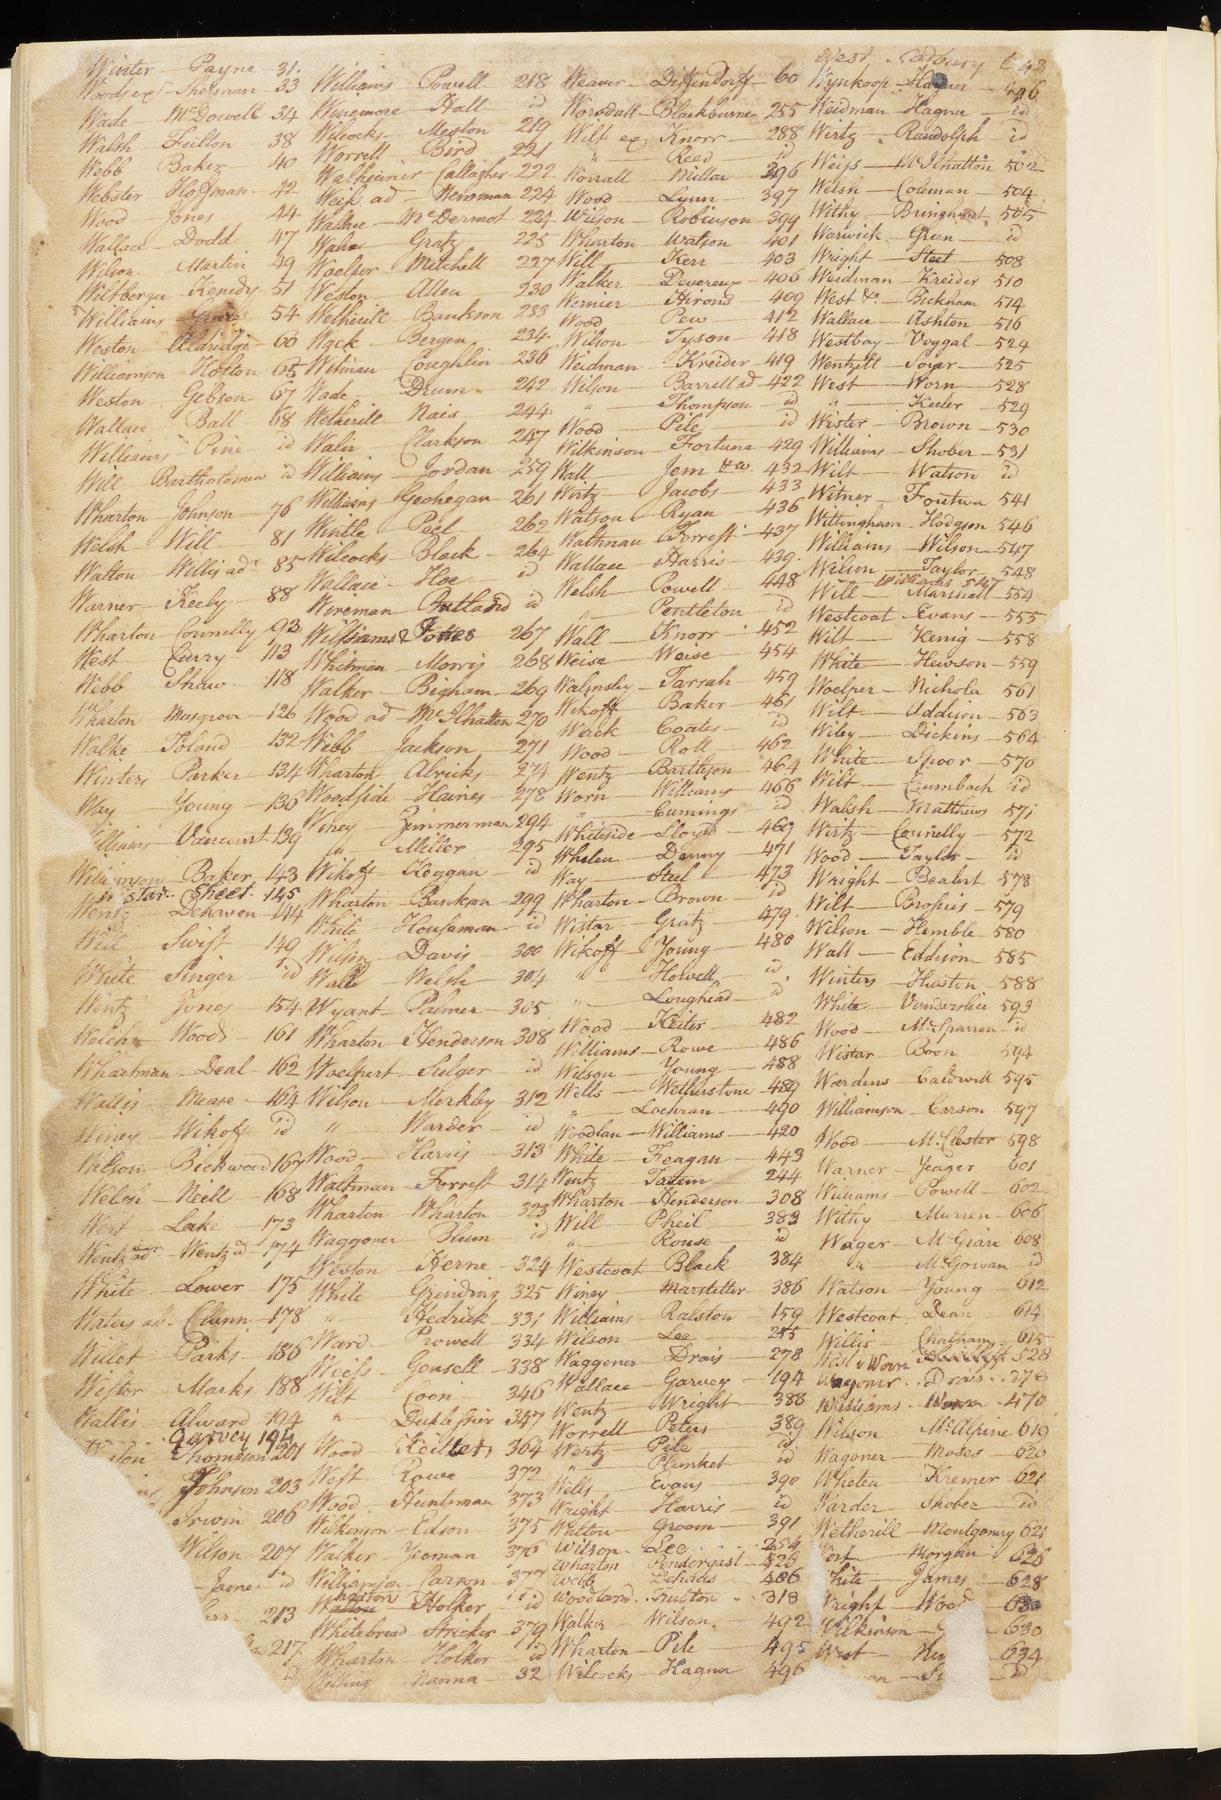 Winter — Payne — 31.
Woods ex — Sherman 33
Wade McDowell 34
Walsh Fulton 38
Webb Baker 40
Webster Hoffman 42
Wood Jones 44
Wallace Dodd 47
Wilson Martin 49
Wiltberger Kenedy 51
Williams 54
Weston Aldridge 60
Williamson Holton 65
Weston Gibson 67
Wallace Ball 68
Williams Pine id
Will Bartholomew id
Wharton Johnson 76
Welsh Will 81
Walton Willis ad 85
Warner Keely 88
Wharton Connelly 93
West Curry 113
Webb Shaw 118
Wharton Musgrove 126
Walke Poland 132
Winters Parker 134
Way Young 136
Williams Vancourt 139
Williamson Baker 143
Wistar Sheet 145
Wentz Dehaven 144
Will Swift 149
White Singer id
Wentz Jones 154
Welch Woods 161
Whartman Deal 162
Wallis Mease 164
Winey Wikoff id
Wilson Bickwood 167
Welsh Neill 168
West Lake 173
Wentz ad Wentz ad 174
White Lower 175
Waters ad Clunn 178
Willet Parks 186
Wester Marks 188
Wallis Alward 194
Garvey 194
Weston Thompson 201
Johnson 203
Irwin 206
Wilson 207
id
213
217
id
Williams Powell 218
Winemore Hall id
Wilcocks Meston 219
Worrell Bird 221
Walheimer Callagher 222
Weik ad Newman 224
Wallace McDermot 224
Waln Gratz 225
Woelper Mitchell 227
Weston Allen 230
Wetherill Bankson 233
Wack Bergen 234
Witman Coughlin 236
Wade Drum 242
Wetherill Nais 244
Waln Clarkson 247
Williams Jordan 259
Williams Geohegan 261
Wintle Peel 262
Wilcocks Black 264
Wallace Hoe id
Wireman Rutland id
Williams & Jones 267
Whitman Morris 268
Walker Bigham 269
Wood ad McIlhatton 270
Webb Jackson 271
Wharton Alricks 274
Woodside Haines 278
Winey Zimmerman 294
" Miller 295
Wikoff Keggan id
Wharton Bankson 299
White Housaman id
Wilson Davis 300
Wall Welsh 304
Wyant Palmer 305
Wharton Henderson 308
Woelpert Sulger id
Wilson Merkley 312
" Warder id
Wood Harris 313
Waltman Forrest 314
Wharton Wharton 323
Waggoner Blum id
Weston Herne 324
White Grinding 325
" Hedrick 331
Ward Powell 334
Weiss Gonsell 338
Wilt Coon 346
" 347
Wood Keitler 364
West Rowe 372
Wood Huntsman 373
Wilkinson Edson 375
Walker Yeoman 376
Williamson Carson 377
Wharton Holker id
Whitebread Stricker 379
Wharton Holker id
Willing Hanna 32
Weaver Diffendorff 60
Worsdall Blackburne 255
Wilt ex Knorr 288
" Reed id
Worrall Millar 396
Wood Lynn 397
Wilson Robinson 399
Wharton Watson 401
Will Kerr 403
Walker Devereux 406
Wernier Hirons 409
Wood Pew 412
Wilson Tyson 418
Weidman Kreider 419
Wilson Barrell ad 422
" Thompson id
Wood Pile id
Wilkinson Fortune 429
Wall Jem &co. 432
Wirtz Jacobs 433
Watson Ryan 436
Waltman Forrest 437
Wallace Harris 439
Welsh Powell 448
" Pentleton id
Wall Knorr 452
Weise Weise 454
Walmsley Tarrah 459
Wikoff Baker 461
Wack Coates id
Wood Roll 462
Wentz Bartleson 464
Worn Williams 466
" Cumings id
Whiteside Lloyd 469
Whelen Denny 471
Way Steel 473
Wharton Brown id
Wistar Gratz 479
Wikoff Young 480
" Howell id
" Loughead id
Wood Keiter 482
Williams Rowe 486
Wilson Young 488
Wells Wetherstone 489
" Lochran 490
Woodlan Williams 420
White Feagan 443
Wentz Tatem 244
Wharton Henderson 308
Will Pheil 383
" Rouse id
Westcoat Black 384
Winey Marstetter 386
Williams Ralston 159
Wilson Lee 255
Waggoner Drais 278
Wallace Garvey 194
Wentz Wright 388
Worrell Peters 389
Wertz Pile id
" Plunket id
Wells Evans 390
Wright Harris id
Walton Groom 391
Wilson Lee 254
Wharton Pendergast 526
Webb Echaas 406
Woodland Fulton 318
Walker Wilson 492
Wharton Pile 495
Wilcocks Hagner 496
West Sadbury 643
Wynkoop Hagner 496
Weidman Hagner id
Wirtz Randolph id
Weiss McIlhatton 502
Welsh Coleman 504
Withy Bringhurst 505
Warwick Gren id
Wright Steet 508
Weidman Kreider 510
West &c. Bickham 514
Wallace Ashton 516
Westbay Voggal 524
Wentzell Soyer 525
West Worn 528
" Keeler 529
Wister Brown 530
Williams Shober 531
Wilt Watson id
Witner Foutwa 541
Wittingham Hodgson 546
Williams Wilson 547
Wilson Taylor 548
Williams 547
Will Marshall 554
Westcoat Evans 555
Wilt Kemig 558
White Hewson 559
Woelper Nichola 561
Wilt Addison 563
Wiley Dickins 564
White Spoor 570
Wilt Crumbach id
Walsh Matthews 571
Wirtz Connelly 572
Wood Taylor id
Wright Bealert 578
Wilt Brosius 579
Wilson Hemble 580
Wall Eddison 585
Winters Huston 588
White Vanderslice 593
Wood McSparran id
Wistar Boon 594
Wordens Caldwell 595
Williamson Carson 597
Wood McClester 598
Warner Yeager 601
Williams Powell 602
Withy Murren 606
Wager McGrari 608
" McGowan id
Watson Young 612
Westcoat Dean 614
Willis Chatham 615
West v Worn 528
Wagoner Drais 278
Williams Worn 470
Wilson McAlpine 619
Wagoner Moses 620
Whelen Kremer 621
Warder Shober id
Wetherill Montgomery 621
West Morgan 626
White James 628
Wright Wood 630
Wilkinson 630
West 634
id